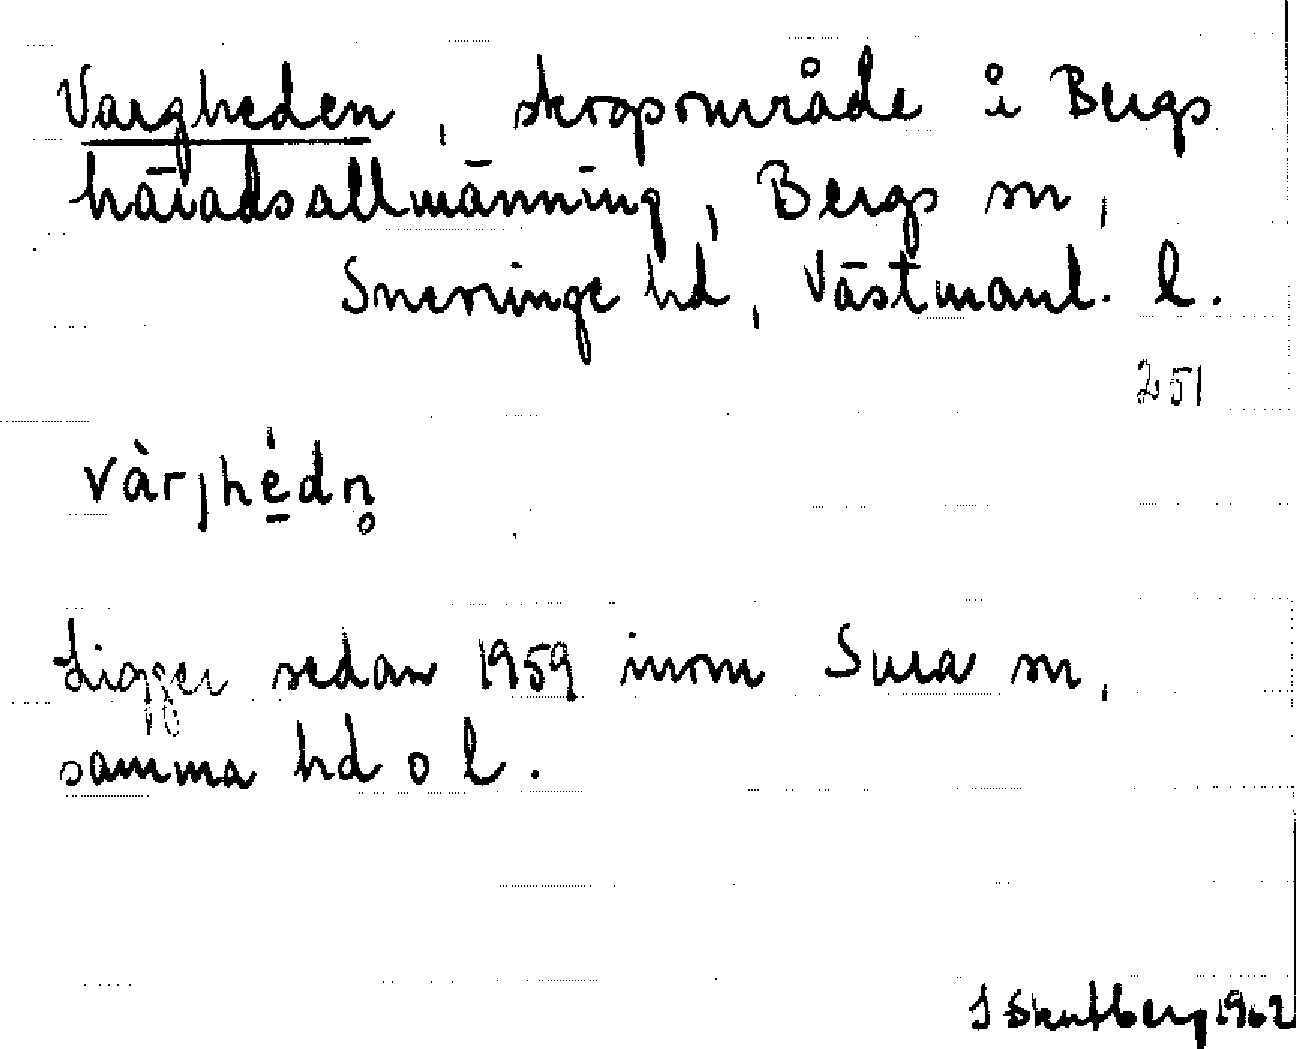 Vargheden, skogsområde i Bergs
häradsallmänning, Bergs sn,
Snevringe hd, Västmanl. l.
251
vàrjhédn̥
Ligger sedan 1959 inom Sura sn,
samma hd o l.
1962